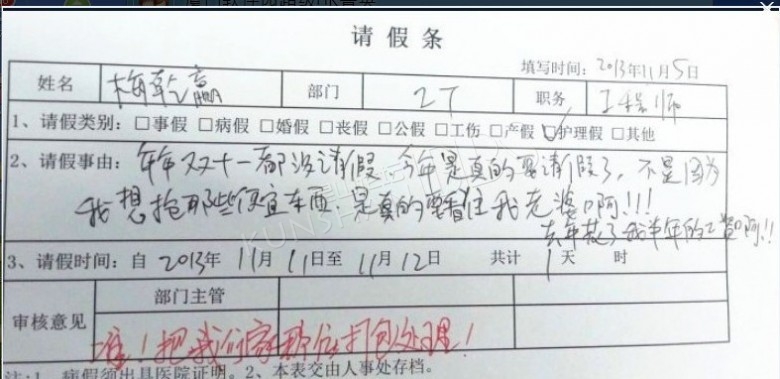 请假条
填写时间：2013年11月5日
姓名 梅乾赢 部门 IT 职务 工程师
1、请假类别：□事假 □病假 □婚假 □丧假 □公假 □工伤 □产假 ☑护理假 □其他
2、请假事由：年年双十一都没请假，今年是真的要请假了，不是因为
我想抢那些便宜东西，是真的要看住我老婆啊!!!
去年败了我半年的工资啊!!
3、请假时间：自 2013年 11月 11日至 11月 12日 共计 1天 时
审核意见 部门主管
准！把我们家那位打包处理！
注：1、病假须出具医院证明。2、本表交由人事处存档。